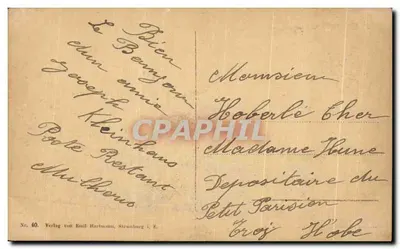 Bien
Le Bonjour
dun amie
Joseph Kleinhans
Poste Restant
Mulhouse
Monsieur
Hoberlé Cher
Madame Hune
Depositaire du
Petit Parisien
Troi
CARTE POSTALE CPAPHIL
No. 40. Verlag von Emil Hartmann, Strassburg i. E.